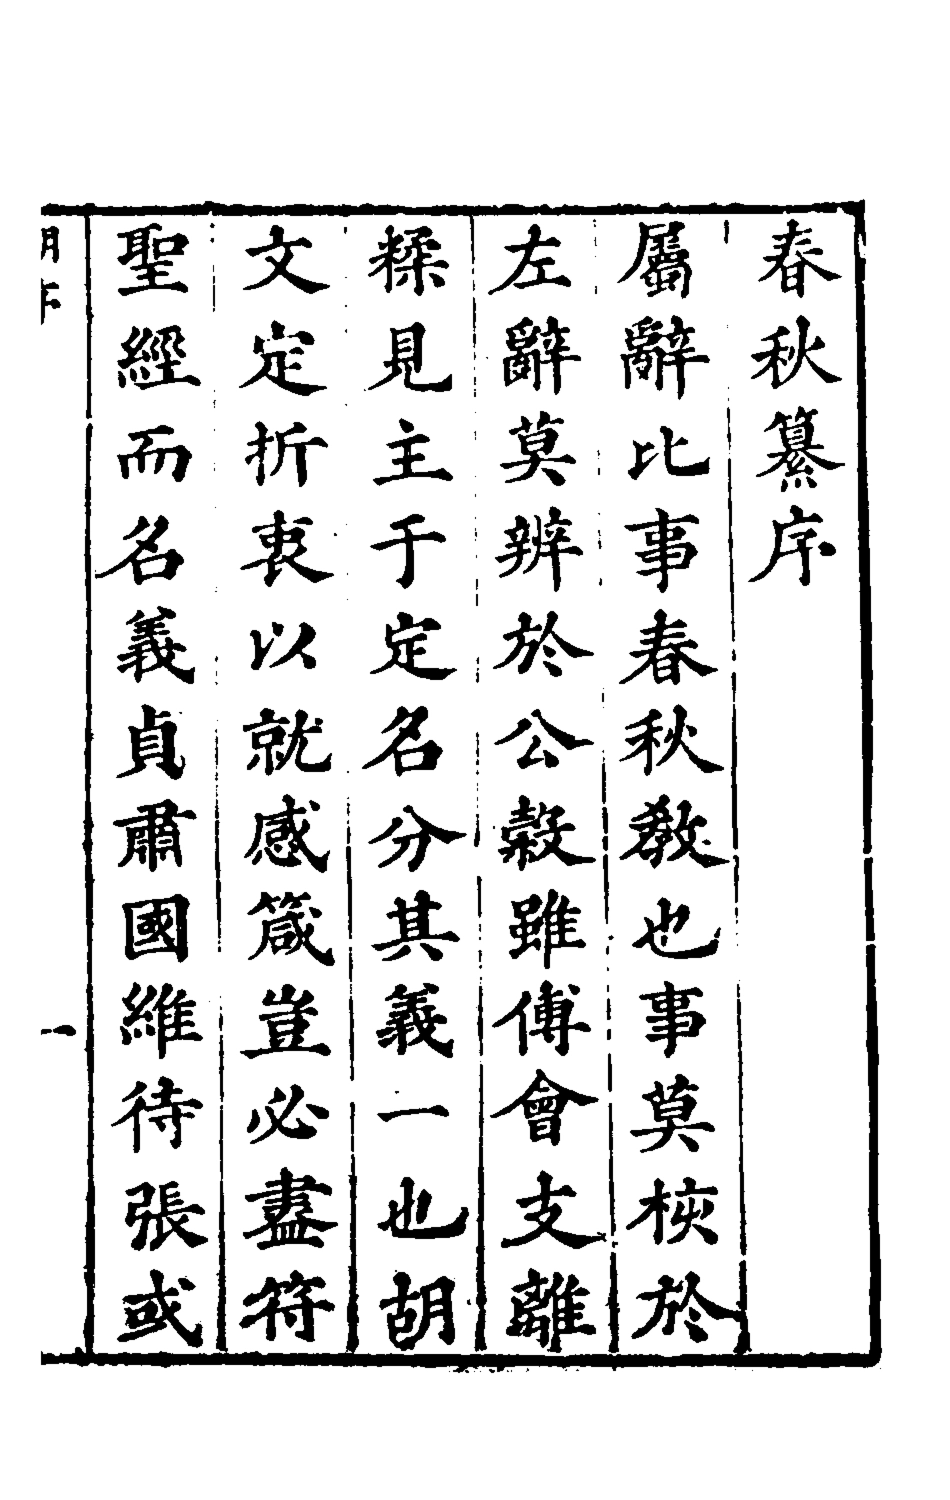 春秋纂序
屬辭比事春秋敎也事莫核於
左辭莫辨於公穀雖傅會支離
糅見主于定名分其義一也胡
文定折衷以就感箴豈必盡符
聖經而名義貞肅國維待張或